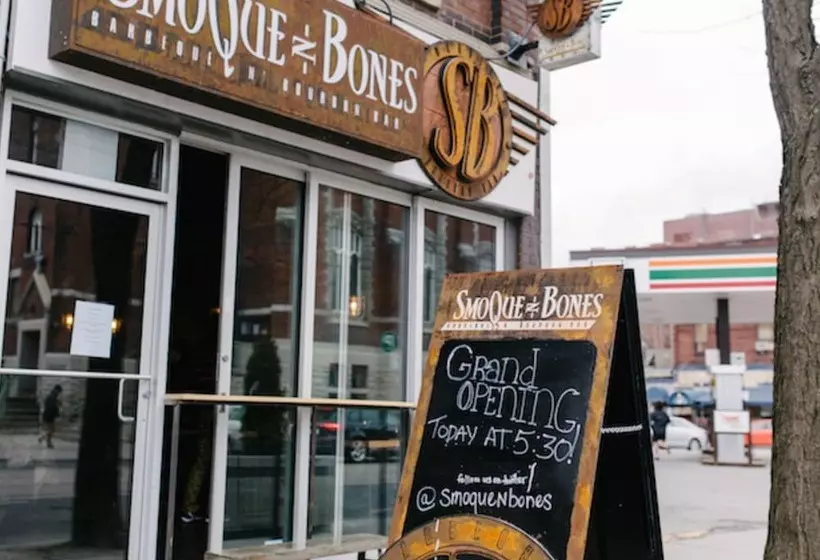 SMOQUE N BONES
BARBEQUE N BOURBON BAR
SB
SB
SMOQUE N BONES
BARBEQUE N BOURBON BAR
GRAND
OPENING
TODAY AT 5:30!
follow us on twitter!
@SMOQUENBONES